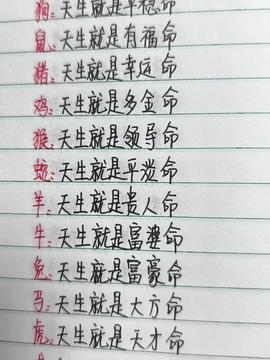 狗：天生就是平稳命
鼠：天生就是有福命
猪：天生就是幸运命
鸡：天生就是多金命
猴：天生就是领导命
蛇：天生就是平淡命
羊：天生就是贵人命
牛：天生就是富婆命
兔：天生就是富豪命
马：天生就是大方命
虎：天生就是天才命